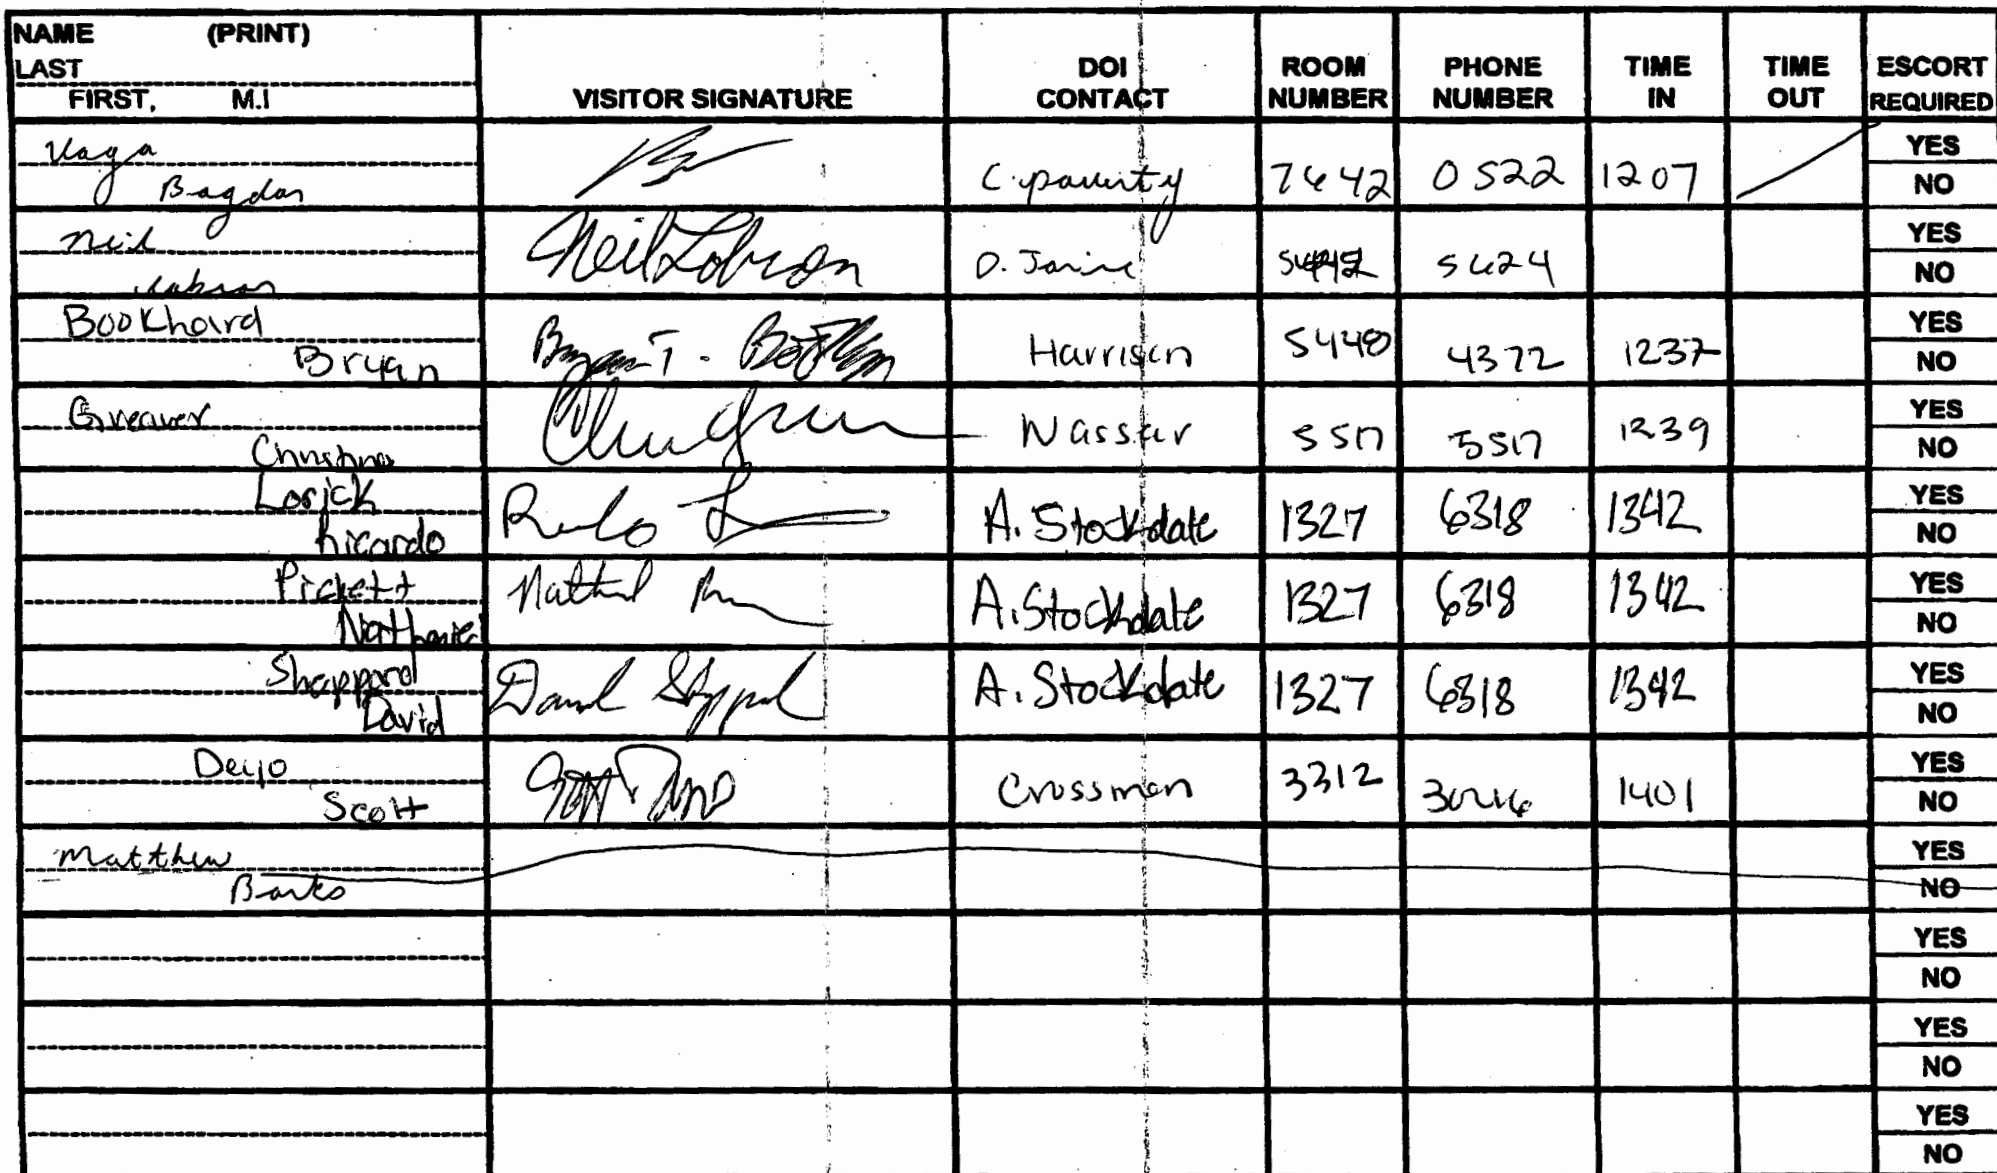 NAME (PRINT)
LAST
FIRST, M.I
VISITOR SIGNATURE
DOI CONTACT
ROOM NUMBER
PHONE NUMBER
TIME IN
TIME OUT
ESCORT REQUIRED
Bagdan 7642 0522 1207 YES NO
Neil Neil Lobron 5624 YES NO
Bookhard Bryan Harrison 5448 4372 1237 YES NO
Greaver Christina Nassar 5517 5517 1239 YES NO
Lorick Ricardo A. Stockdate 1327 6318 1342 YES NO
Pickett Nathaniel A. Stockdate 1327 6318 1342 YES NO
Sheppard David A. Stockdate 1327 6318 1342 YES NO
Deyo Scott Crossman 3312 1401 YES NO
Matthew Barks YES NO
YES NO
YES NO
YES NO